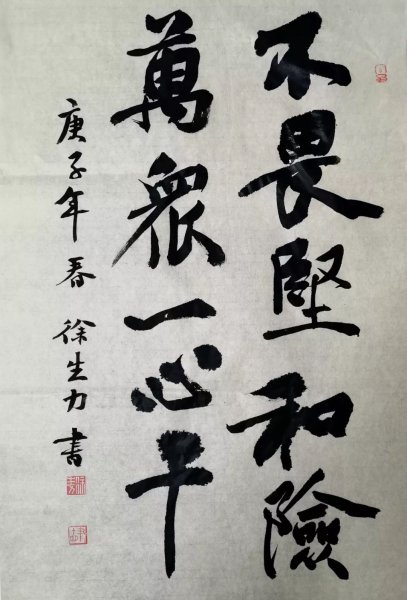 不畏堅和險
萬眾一心干
庚子年春 徐生力書